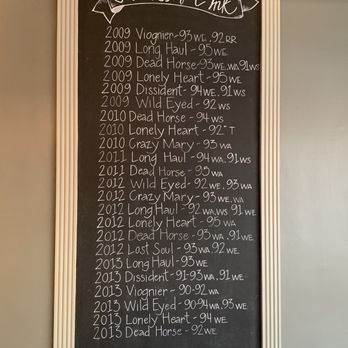 2009 Viognier-93WE.92RR
2009 Long Haul-95WE
2009 Dead Horse-93WE,WA.91WS
2009 Lonely Heart-95WE
2009 Dissident-94WE.91WS
2009 Wild Eyed-92WS
2010 Dead Horse-94WS
2010 Lonely Heart-92+T
2010 Crazy Mary-93WA
2011 Long Haul-94WA.91WS
2011 Dead Horse-95WA
2012 Wild Eyed-92WE.93WA
2012 Crazy Mary-93WE,WA
2012 Long Haul-92WA,WS 91WE
2012 Lonely Heart-95WA
2012 Dead Horse-93WA.91WE
2012 Lost Soul-93WA.92WE
2013 Long Haul-93WE
2013 Dissident-91-93WA.91WE
2013 Viognier-90-92WA
2013 Wild Eyed-90-94WA.93WE
2013 Lonely Heart-94WE
2013 Dead Horse-92WE